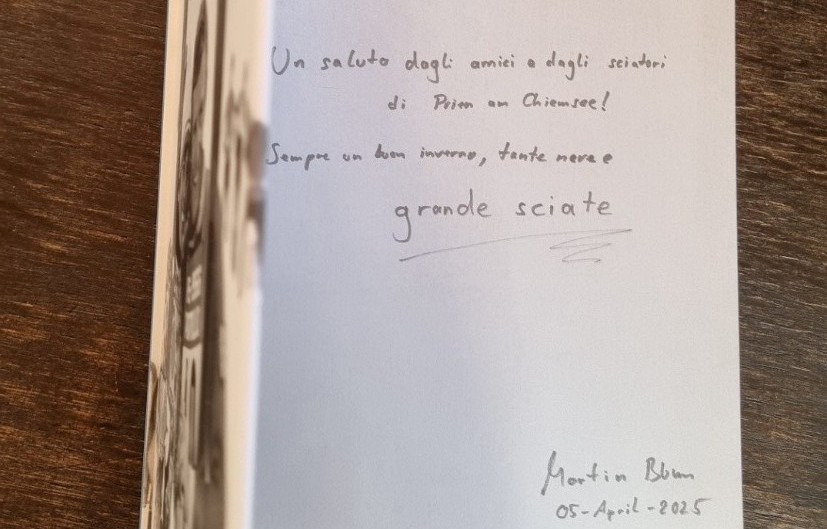 Un saluto dagli amici e dagli sciatori
di Prien am Chiemsee!
Sempre un buon inverno, tante neve e
grande sciate
Martin
05-April-2025